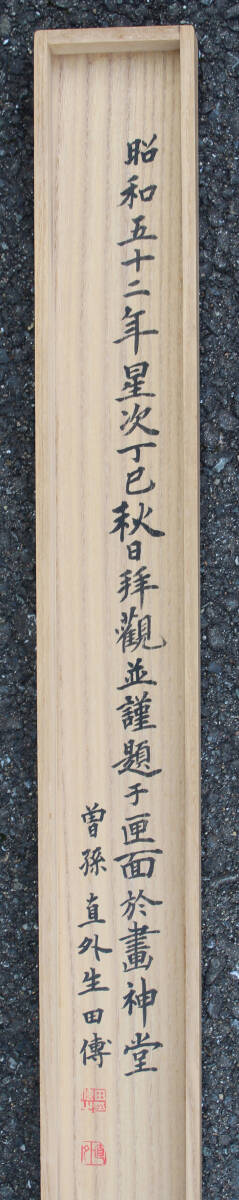 昭和五十二年星次丁巳秋日拜觀並謹題于匣面於畫神堂
曽孫直外生田傳